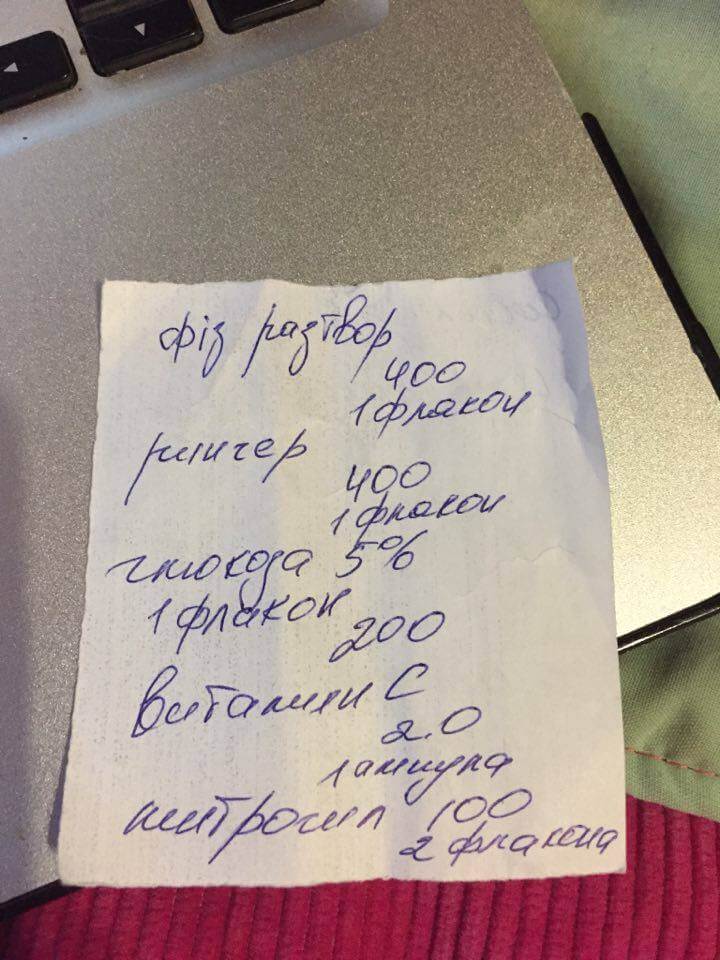 фіз разтвор
400
1 флакон
рингер
400
1 флакон
глюкоза 5%
1 флакон
200
витамин С
2.0
1 ампула
митрогил 100
2 флакона